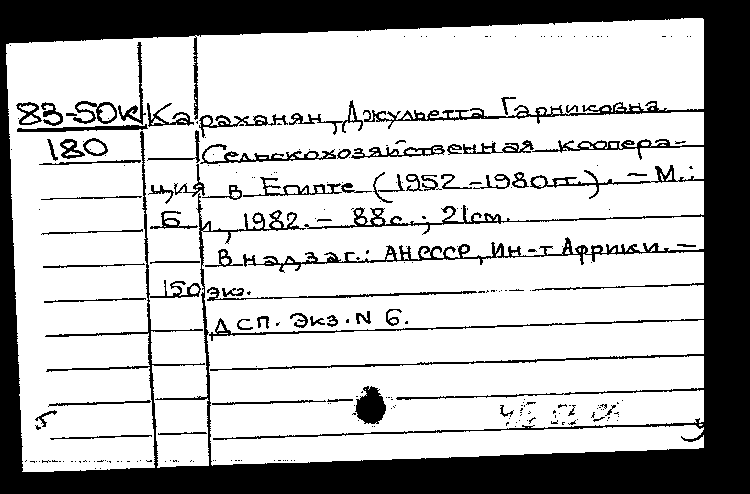 83-50К Караханян, Джульетта Гарниковна.
180 Сельскохозяйственная коопера-
ция в Египте (1952-1980гг.). - М.:
Б и, 1982. - 88с.; 21см.
В надзаг.: АН СССР, Ин-т Африки. -
150экз.
ДСП. Экз. N 6.
5